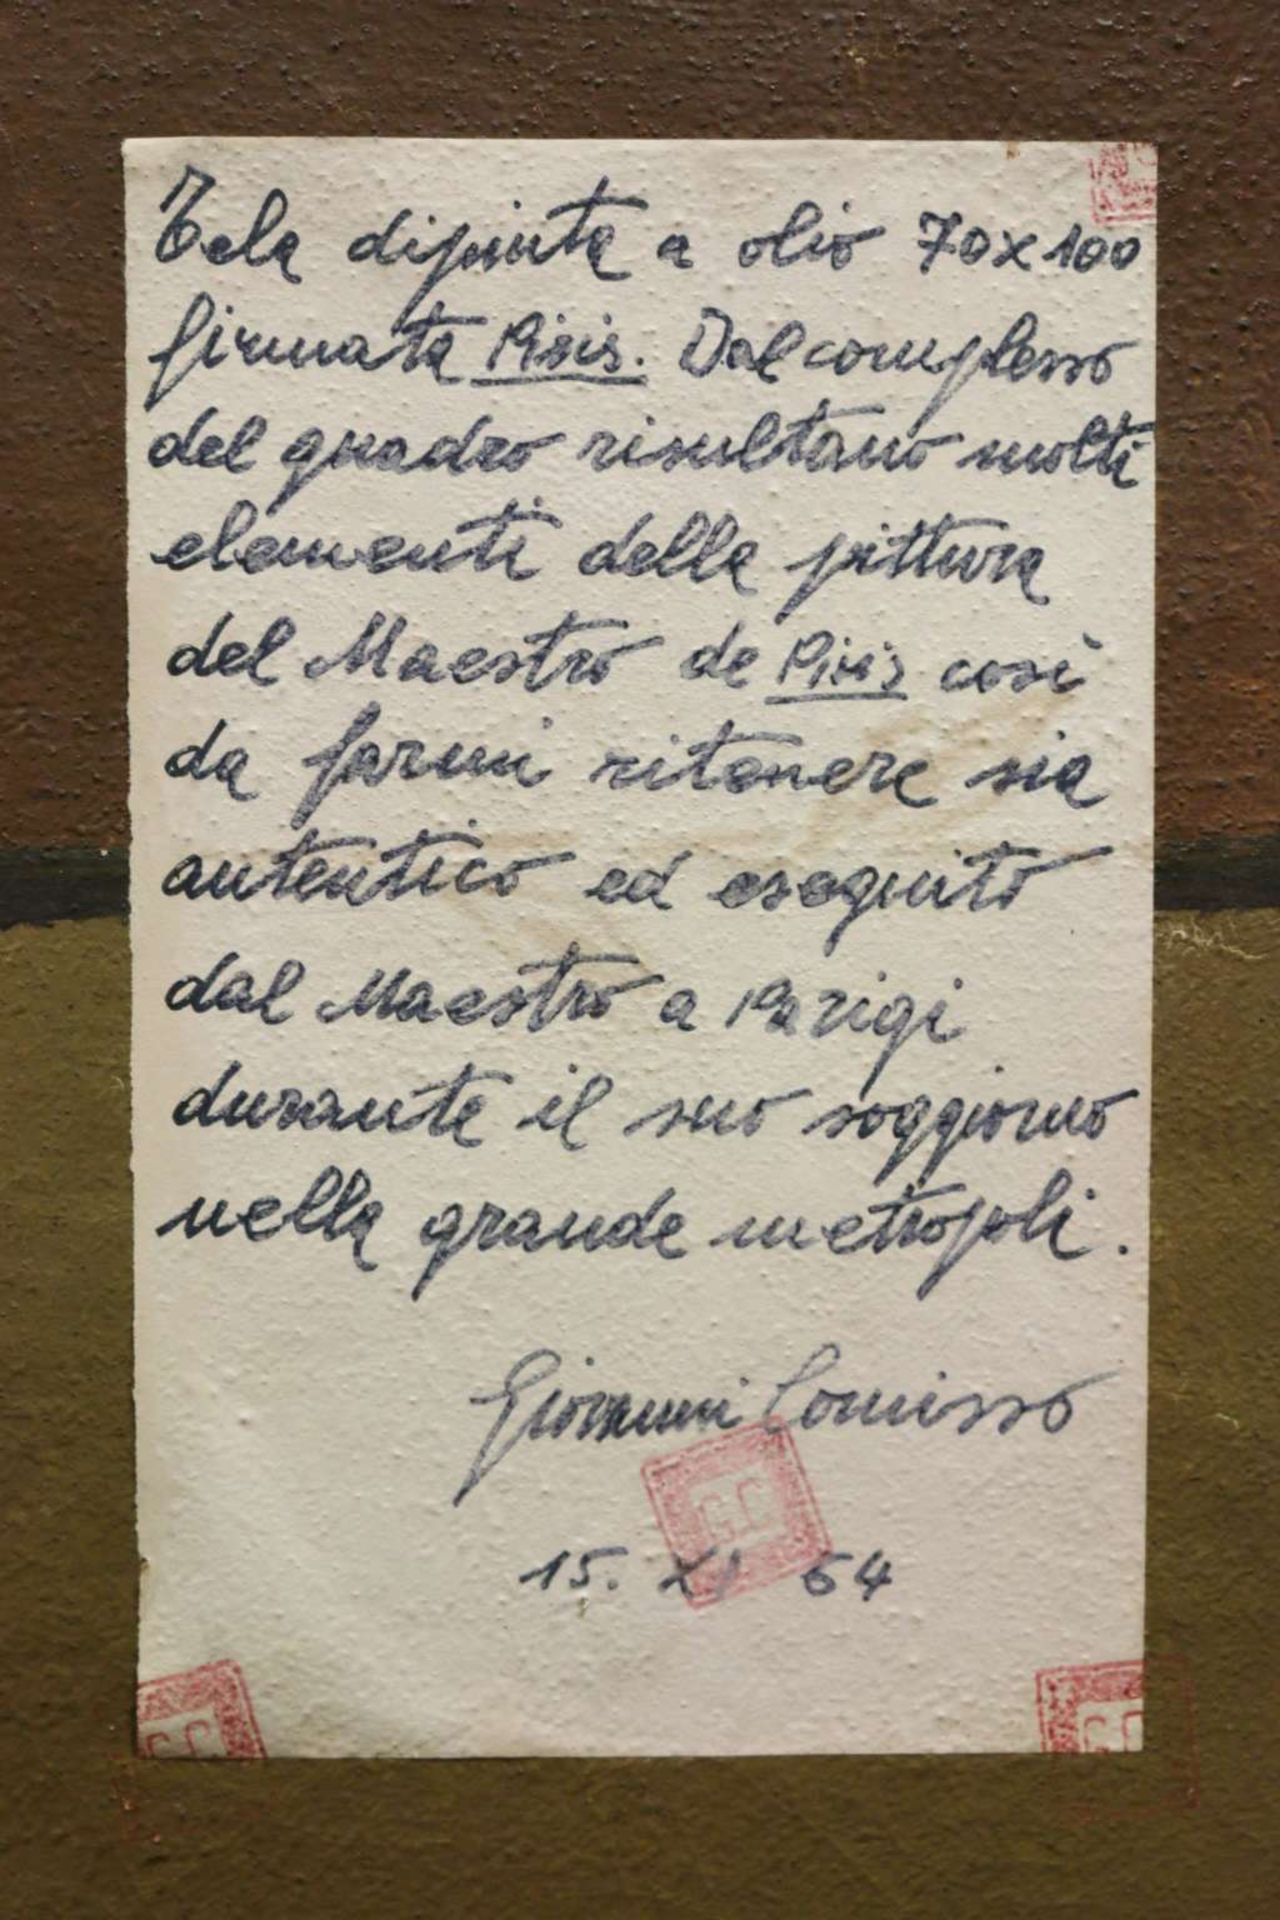 Tela dipinta a olio 70x100
firmata Pisis. Dal complesso
del quadro risultano molti
elementi della pittura
del Maestro de Pisis così
da farmi ritenere sia
autentico ed eseguito
dal Maestro a Parigi
durante il suo soggiorno
nella grande metropoli.
Giovanni Comisso
G.C
15. XI 64
G.C
G.C